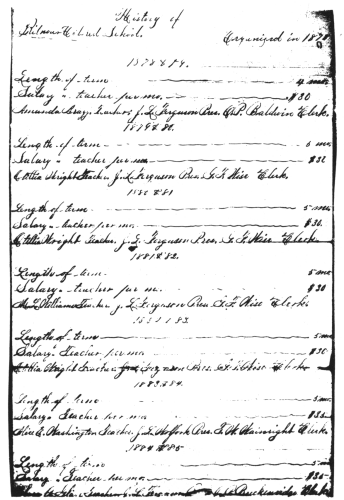 History of
Colored School Organized in 1878
1878 & 79.
Length of term 4 mos
Salary of teacher per mo. $30
Amanda Gray, Teacher J. L. Ferguson Pres. A. P. Baldwin Clerk.
1879 & 80.
Length of term 5 mos
Salary " teacher per mo. $30
Wright Teacher J. L. Ferguson Pres. G. F. Wise Clerk.
1880 & 81
Length of term 5 mos
Salary " teacher per mo. $30.
Wright Teacher J. L. Ferguson Pres. G. F. Wise Clerk
1881 & 82.
Length of term 5 mos
Salary " teacher per mo. $30
Williams Teacher J. L. Ferguson Pres. G. F. Wise Clerk
83.
Length of term 5 mos
Salary " Teacher per mo $30
Wright Teacher Ferguson Pres. Wise Clerk
1883 & 84.
Length of term 5 mos
Salary " Teacher per mo
Washington Teacher, J. L. Pres. G. W. Wainright Clerk
1884 & 85
Length of term 5 mos
Salary " Teacher per mo
Teacher J. L. Ferguson